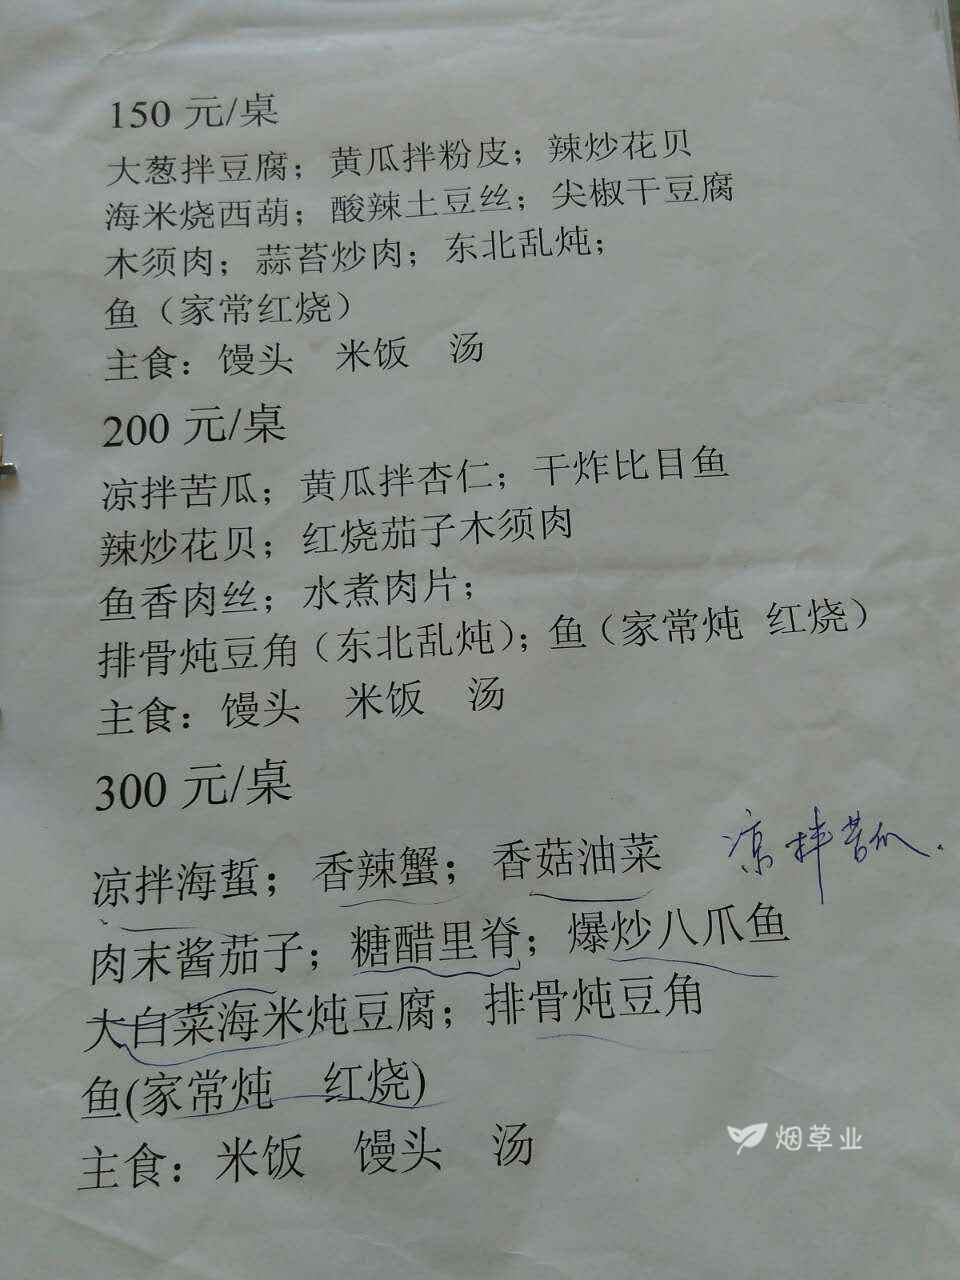 150 元/桌
大葱拌豆腐；黄瓜拌粉皮；辣炒花贝
海米烧西葫；酸辣土豆丝；尖椒干豆腐
木须肉；蒜苔炒肉；东北乱炖；
鱼（家常红烧）
主食：馒头 米饭 汤
200 元/桌
凉拌苦瓜；黄瓜拌杏仁；干炸比目鱼
辣炒花贝；红烧茄子木须肉
鱼香肉丝；水煮肉片；
排骨炖豆角（东北乱炖）；鱼（家常炖 红烧）
主食：馒头 米饭 汤
300 元/桌
凉拌海蜇；香辣蟹；香菇油菜 凉拌苦瓜.
肉末酱茄子；糖醋里脊；爆炒八爪鱼
大白菜海米炖豆腐；排骨炖豆角
鱼(家常炖 红烧)
主食：米饭 馒头 汤
烟草业